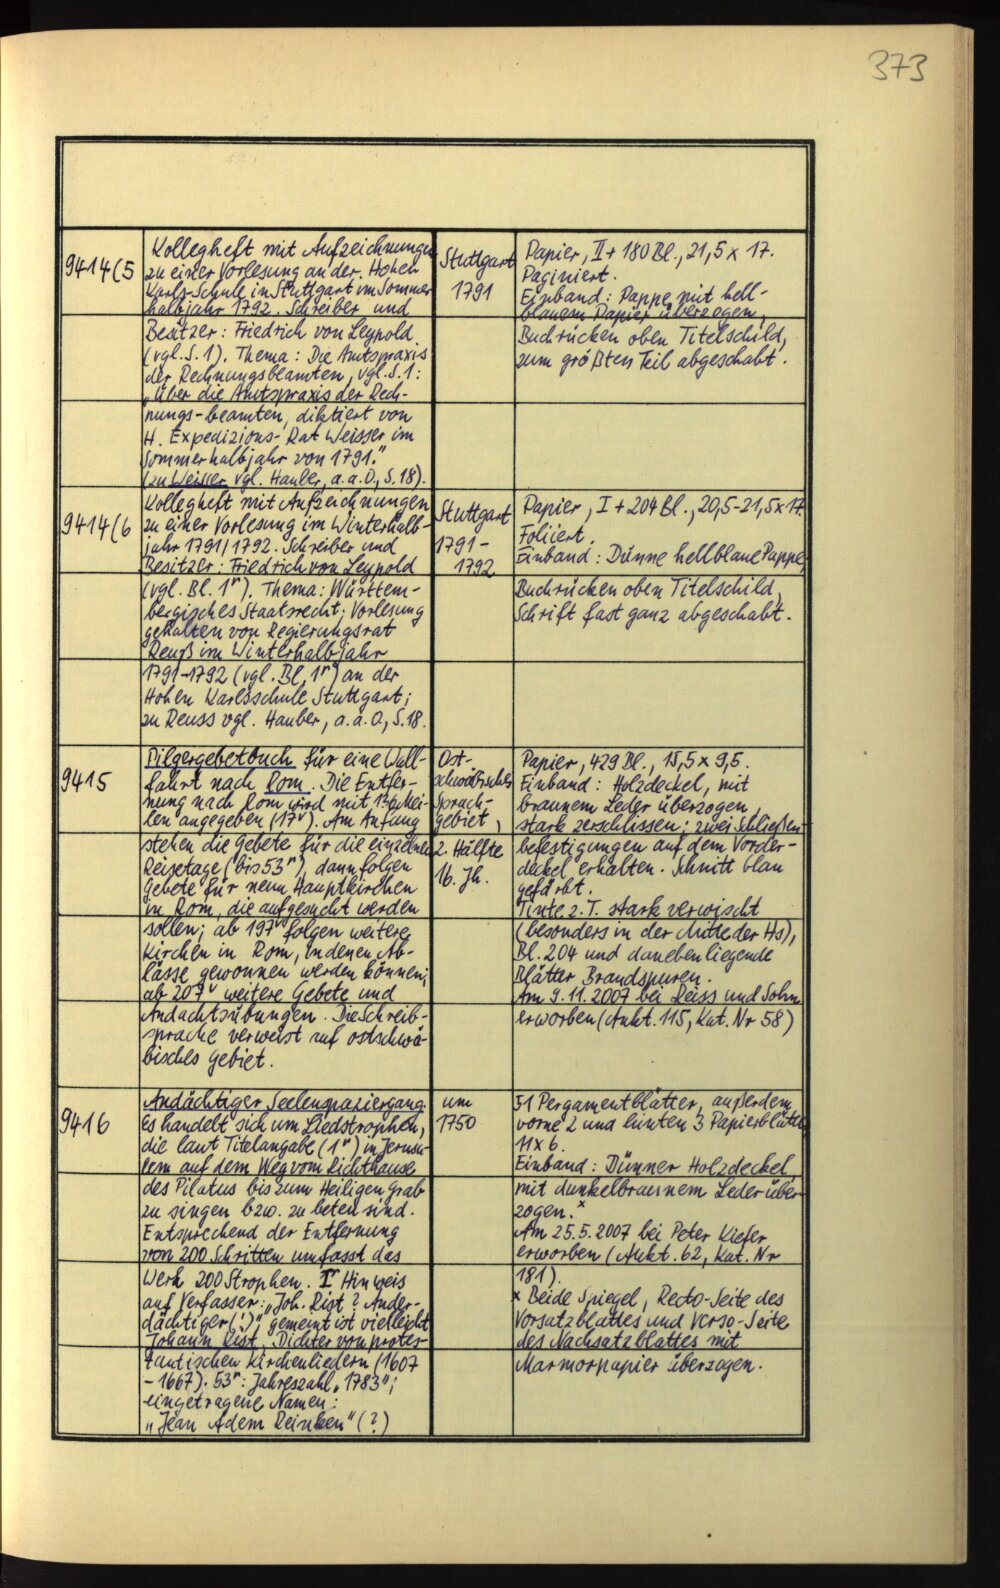 373
9414(5
Kollegheft mit Aufzeichnungen
zu einer Vorlesung an der Hohen
Karls-Schule in Stuttgart im Sommer
halbjahr 1792. Schreiber und
Besitzer: Friedrich von Leypold
(vgl. S. 1). Thema: Die Amtspraxis
der Rechnungsbeamten, vgl. S. 1:
„über die Amtspraxis der Rech-
nungs-beamten, diktiert von
H. Expedizions-Rat Weisser im
Sommerhalbjahr von 1791."
(zu Weisser vgl. Hauber, a.a.O, S. 18).
Stuttgart
1791
Papier, II + 180 Bl., 21,5 x 17.
Paginiert.
Einband: Pappe mit hell-
blauem Papier überzogen,
Buchrücken oben Titelschild,
zum größten Teil abgeschabt.
9414(6
Kollegheft mit Aufzeichnungen
zu einer Vorlesung im Winterhalb-
jahr 1791/1792. Schreiber und
Besitzer: Friedrich von Leypold
(vgl. Bl. 1r). Thema: Württem-
bergisches Staatsrecht; Vorlesung
gehalten von Regierungsrat
Reuß im Winterhalbjahr
1791-1792 (vgl. Bl. 1r) an der
Hohen Karlsschule Stuttgart;
zu Reuss vgl. Hauber, a.a.O, S. 18.
Stuttgart
1791-
1792
Papier, I + 204 Bl., 20,5-21,5 x 17.
Foliiert.
Einband: Dünne hellblaue Pappe,
Buchrücken oben Titelschild,
Schrift fast ganz abgeschabt.
9415
Pilgergebetbuch für eine Wall-
fahrt nach Rom. Die Entfer-
nung nach Rom wird mit 136 Mei-
len angegeben (17v). Am Anfang
stehen die Gebete für die einzelnen
Reisetage (bis 53r), dann folgen
Gebete für neun Hauptkirchen
in Rom, die aufgesucht werden
sollen; ab 197v folgen weitere
Kirchen in Rom, in denen Ab-
lässe gewonnen werden können;
ab 207v weitere Gebete und
Andachtsübungen. Die Schreib-
sprache verweist auf ostschwä-
bisches Gebiet.
Ost-
schwäbisches
Sprach-
gebiet,
2. Hälfte
16. Jh.
Papier, 429 Bl., 15,5 x 9,5.
Einband: Holzdeckel, mit
braunem Leder überzogen,
stark zerschlissen; zwei Schließen-
befestigungen auf dem Vorder-
deckel erhalten. Schnitt blau
gefärbt.
Tinte z.T. stark verwischt
(besonders in der Mitte der Hs),
Bl. 204 und danebenliegende
Blätter Brandspuren.
Am 9.11.2007 bei Reiss und Sohn
erworben (Aukt. 115, Kat. Nr 58)
9416
Andächtiger Seelenspaziergang
Es handelt sich um Liedstrophen,
die laut Titelangabe (1r) in Jerusa-
lem auf dem Weg vom Richthause
des Pilatus bis zum Heiligen Grab
zu singen bzw. zu beten sind.
Entsprechend der Entfernung
von 200 Schritten umfasst das
Werk 200 Strophen. Ir Hinweis
auf Verfasser: „Joh. Rist? Ander-
dächtiger (!)" gemeint ist vielleicht
Johann Rist, Dichter von protes-
tantischen Kirchenliedern (1607
- 1667). 53r: Jahreszahl „1783";
eingetragene Namen:
„Jean Adem Reinken" (?)
um
1750
51 Pergamentblätter, außerdem
vorne 2 und hinten 3 Papierblätter
11 x 6.
Einband: Dünner Holzdeckel
mit dunkelbraunem Leder über-
zogen. x
Am 25.5.2007 bei Peter Kiefer
erworben (Aukt. 62, Kat. Nr
181).
x Beide Spiegel, Recto-Seite des
Vorsatzblattes und Verso-Seite
des Nachsatzblattes mit
Marmorpapier überzogen.